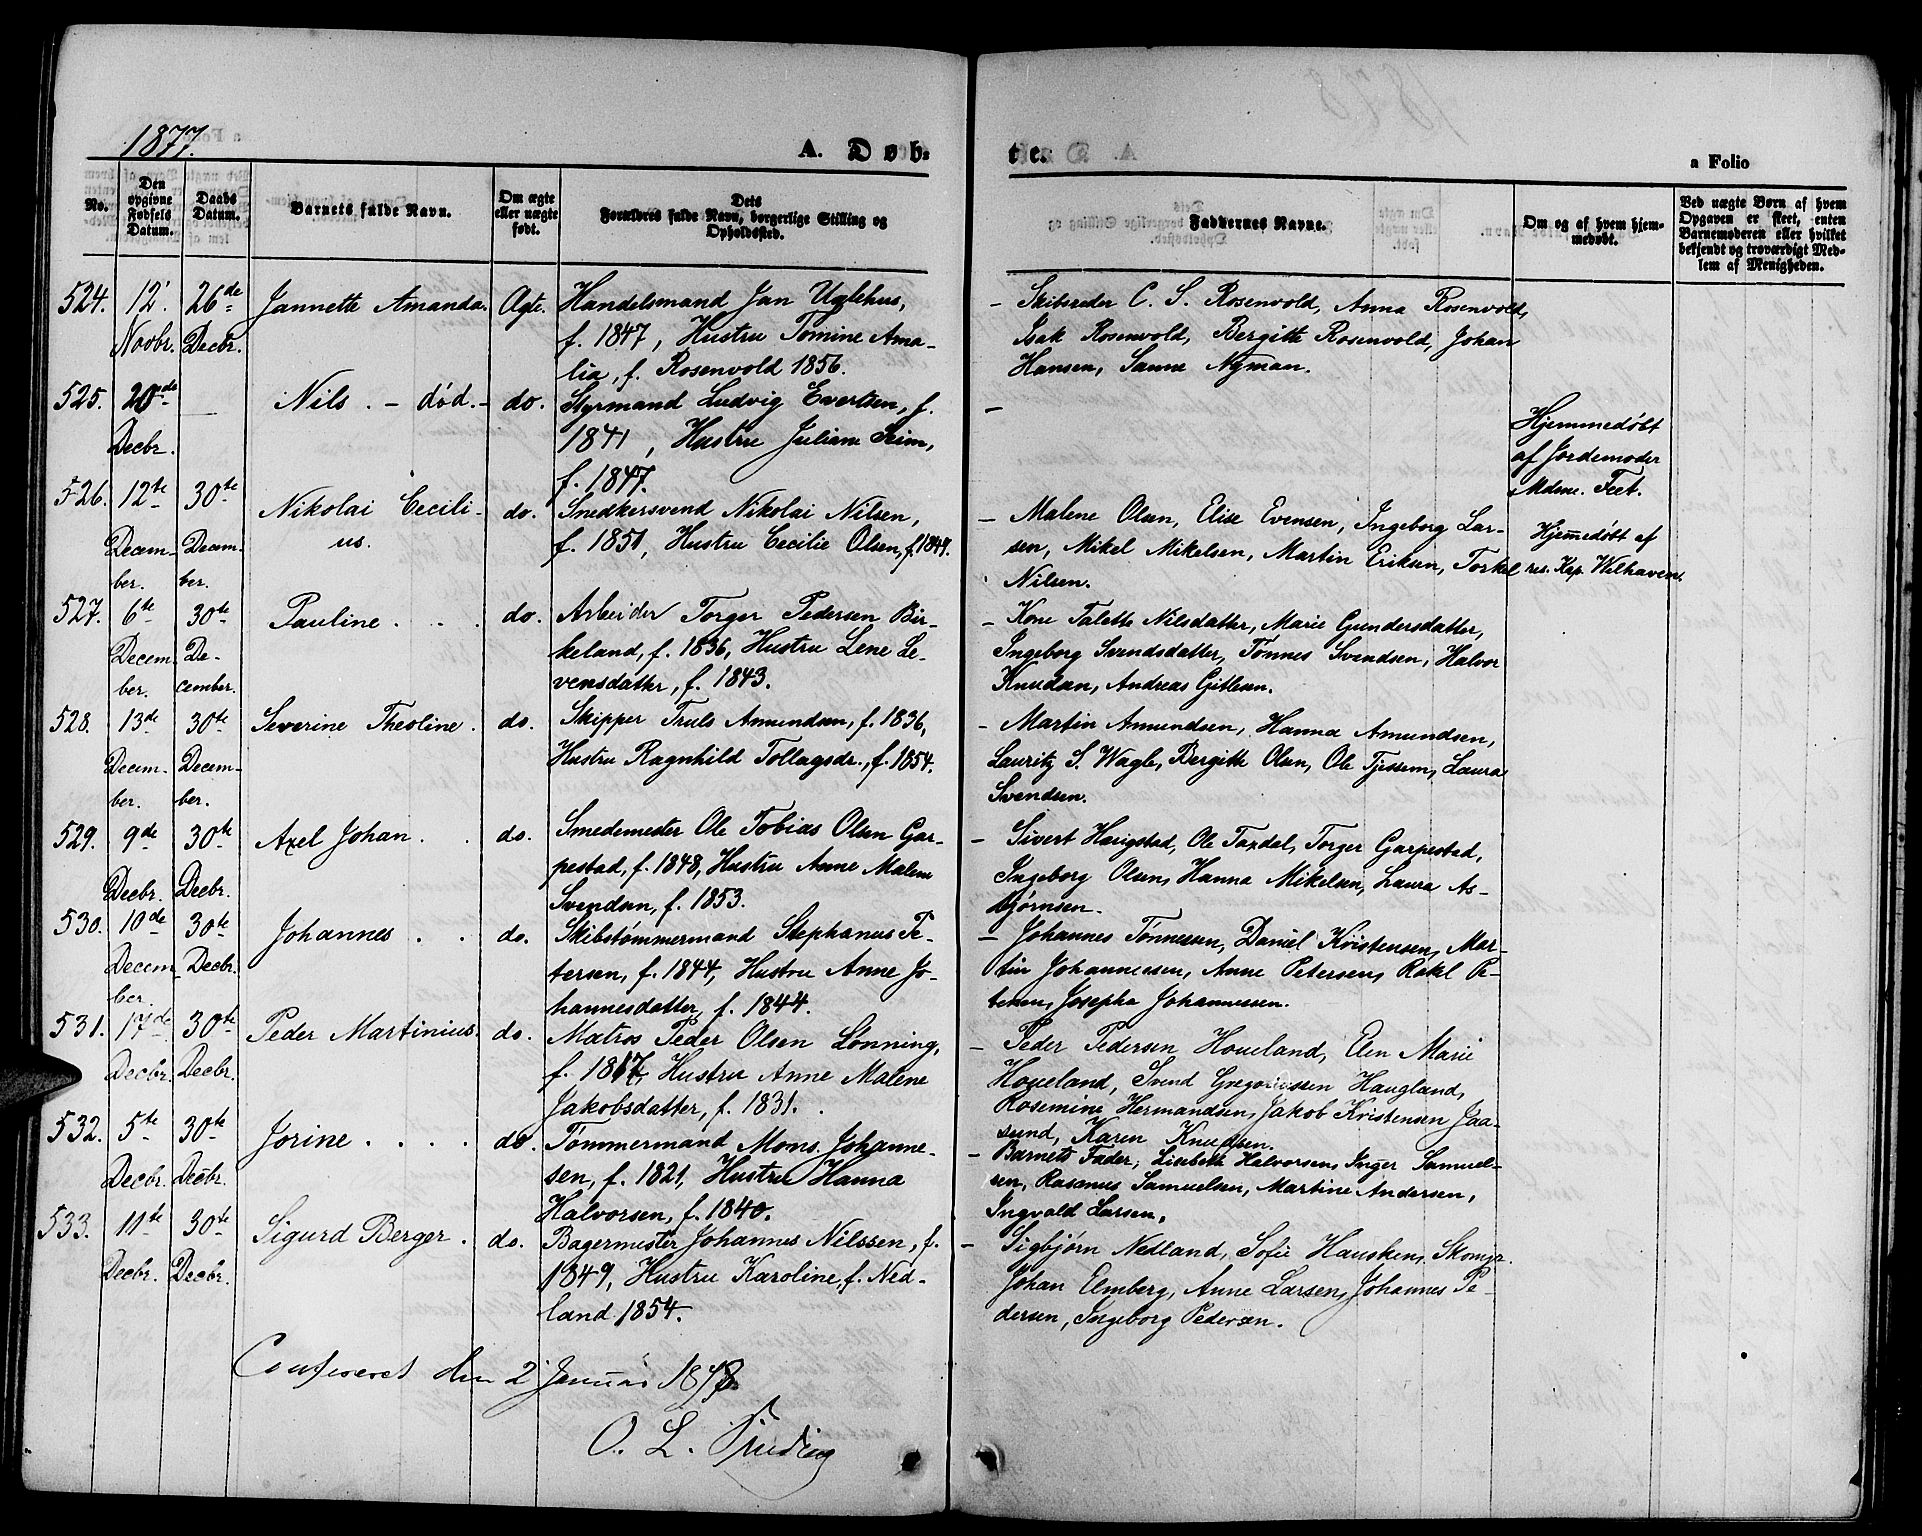 1877.
A. Døb-
te.
a Folio
No.
Den opgivne Fødsels Datum.
Daabs Datum.
Barnets fulde Navn.
Om ægte eller uægte født.
Dets Forældres fulde Navn, borgerlige Stilling og Opholdssted.
Faddernes Navne.
Om og af hvem hjemmedøbt.
Ved uægte Børn af hvem Opgaven er skeet, enten Barnemoderen eller hvilket bekjendt og troværdigt Medlem af Menigheden.
524. 12' 26de Jannette Amanda. Ægte. Handelsmand Jan Uglehus,
Novbr. Decbr. f. 1847, Hustru Tomine Ama-
lia, f. Rosenvold 1856.
– Skibsreder C. S. Rosenvold, Anna Rosenvold,
Isak Rosenvold, Bergitte Rosenvold, Johan
Hansen, Sanne Nyman.
525. 20de — Nils. – død. – do. Styrmand Ludvig Evertsen, f.
Decbr. 1841, Hustru Juliane Seim,
f. 1847.
–
Hjemmedøbt
af Jordemoder
Mdme. Feet.
526. 12te 30te Nikolai Cecili- do. Snedkersvend Nikolai Nilsen,
Decem- Decem- us. f. 1851, Hustru Cecilie Olsen, f. 1849.
ber. ber.
– Malene Olsen, Elise Evensen, Ingeborg Lar-
sen, Mikel Mikelsen, Martin Eriksen, Torkel
Nilsen.
Hjemedøbt af
res. Kap. Welhaven.
527. 6te 30te Pauline . . . do. Arbeider Torger Pedersen Bir-
Decem- De- keland, f. 1836, Hustru Lene Le-
ber. cember. vensdatter, f. 1843.
– Kone Talette Nilsdatter, Marie Gundersdatter,
Ingeborg Svendsdatter, Tønnes Svendsen, Halvor
Knudsen, Andreas Gitlesen.
528. 13de 30te Severine Theoline . do. Skipper Truls Amundsen, f. 1836,
Decem- Decem- Hustru Ragnhild Tollagsdr., f. 1854.
ber. ber.
– Martin Amundsen, Hanna Amundsen,
Lauritz S. Wagle, Bergitte Olsen, Ole Tjessem, Laura
Svendsen.
529. 9de 30te Axel Johan . . do. Smedemester Ole Tobias Olsen Gar-
Decbr. Decbr. pestad, f. 1848, Hustru Anne Malene
Svendsen, f. 1853.
– Sivert Haugstad, Ole Taxdal, Torger Garpestad,
Ingeborg Olsen, Hanna Mikelsen, Laura As-
bjørnsen.
530. 10de 30te Johannes . . do. Skibstømmermand Stephanus Pe-
Decem- Decbr. tersen, f. 1844, Hustru Anne Jo-
ber. hannesdatter, f. 1844.
– Johannes Tønnessen, Daniel Kristensen, Mar-
tin Johannessen, Anne Petersen, Rakel Pe-
tersen, Josepha Johannessen.
531. 17de 30te Peder Martinius. do. Matros Peder Olsen Lønning,
Decbr. Decbr. f. 1817, Hustru Anne Malene
Jakobsdatter, f. 1831.
– Peder Pedersen Houeland, Elen Marie
Houeland, Svend Gregoriussen Haugland,
Rosemine Hermandsen, Jakob Kristensen Jaa-
sund, Karen Knudsen.
532. 5te 30te Jorine . . . . do. Tømmermand Mons Johanne-
Decbr. Decbr. sen, f. 1821, Hustru Hanna
Halvorsen, f. 1840.
– Barnets Fader, Lisebeth Halvorsen, Inger Samuel-
sen, Rasmus Samuelsen, Martine Andersen,
Ingvald Larsen.
533. 11te 30te Sigurd Berger . do. Bagermester Johannes Nilssen, f.
Decbr. Decbr. 1849, Hustru Karoline, f. Ned-
land 1854.
– Sigbjørn Nedland, Sofie Hausken, Skomgr.
Johan Elmberg, Anne Larsen, Johannes Pe-
dersen, Ingeborg Pedersen.
Confereret den 2' Januar 1878
O. L.